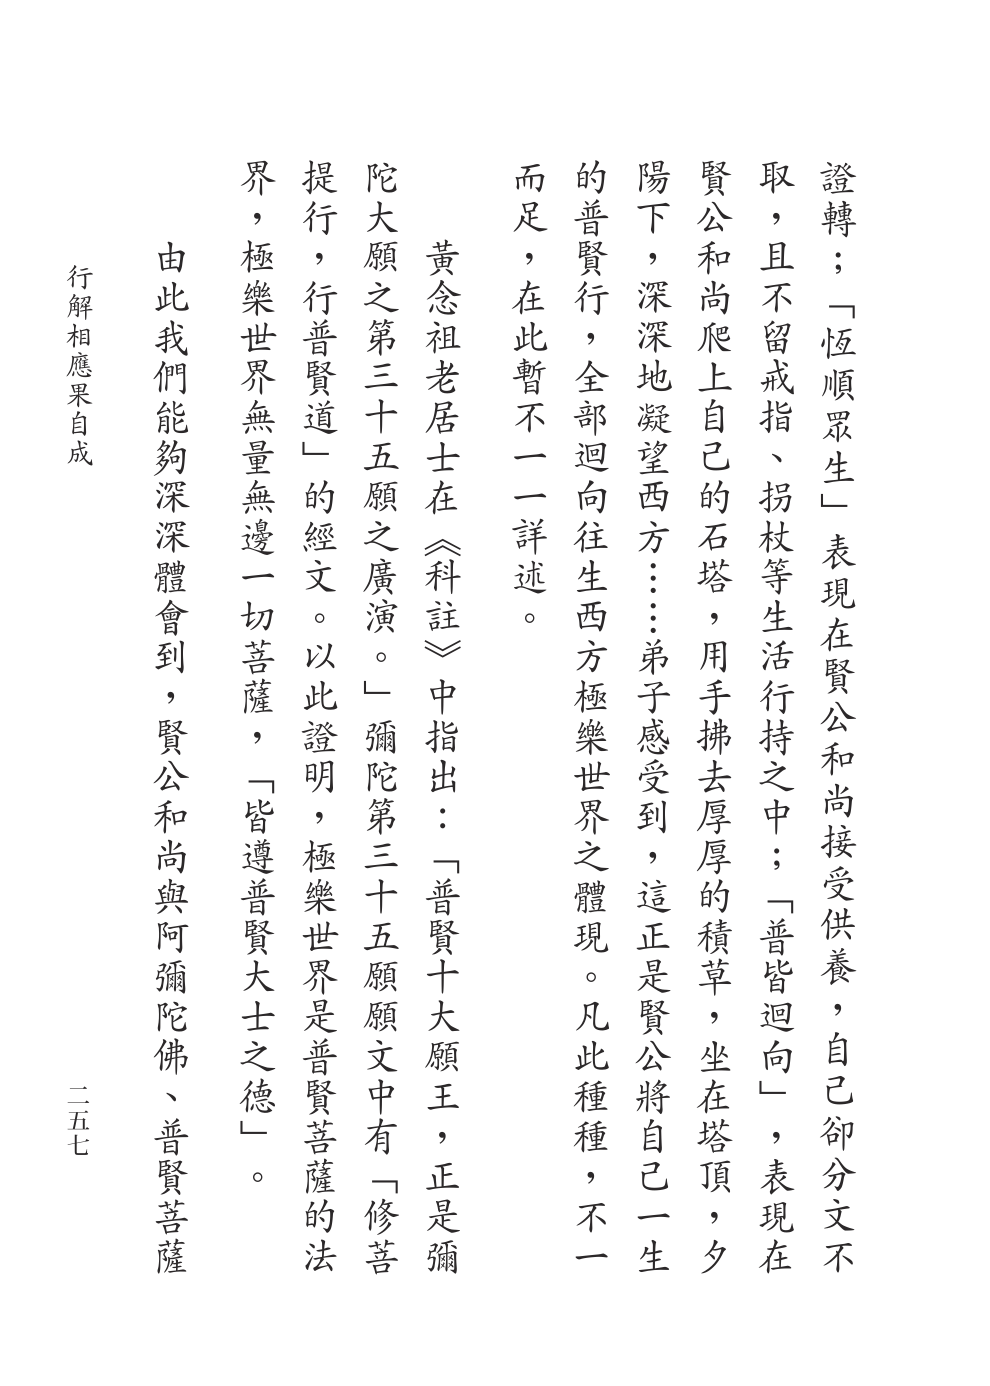 證轉；「恆順眾生」表現在賢公和尚接受供養，自己卻分文不
取，且不留戒指、拐杖等生活行持之中；「普皆迴向」，表現在
賢公和尚爬上自己的石塔，用手拂去厚厚的積草，坐在塔頂，夕
陽下，深深地凝望西方……弟子感受到，這正是賢公將自己一生
的普賢行，全部迴向往生西方極樂世界之體現。凡此種種，不一
而足，在此暫不一一詳述。
黃念祖老居士在《科註》中指出：「普賢十大願王，正是彌
陀大願之第三十五願之廣演。」彌陀第三十五願願文中有「修菩
提行，行普賢道」的經文。以此證明，極樂世界是普賢菩薩的法
界，極樂世界無量無邊一切菩薩，「皆遵普賢大士之德」。
由此我們能夠深深體會到，賢公和尚與阿彌陀佛、普賢菩薩
行解相應果自成
二五七